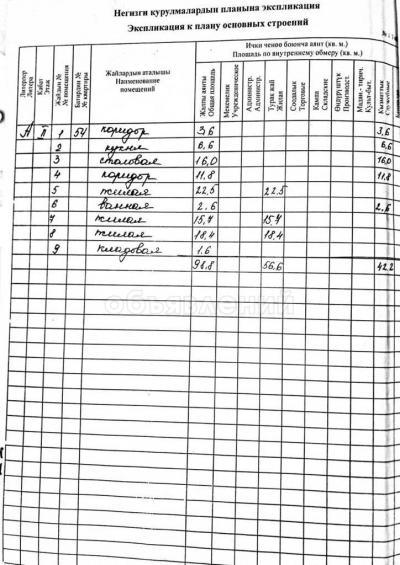 Негизги курулмалардын планына экспликация
Экспликация к плану основных строений
Ички ченөө боюнча аянт (кв. м.)
Площадь по внутреннему обмеру (кв. м.)
Литерлер Литера
Кабат Этаж
Жайдын № № помещения
Батирдин № № квартиры
Жайлардын аталышы Наименование помещений
Жалпы аянты Общая площадь
Мекемелик Учрежденческие
Администр. Администр.
Турак жай Жилая
Соодалык Торговые
Кампа Складские
Өндүрүштүк Производст.
Мадан.-тирич. Культ-быт.
Кызматтык Служебные
А II 1 54 коридор 3,6 3,6
2 кухня 6,6 6,6
3 столовая 16,0 16,0
4 коридор 11,8 11,8
5 жилая 22,5 22.5
6 ванная 2.6 2.6
7 жилая 15,7 15,7
8 жилая 18,4 18,4
9 кладовая 1.6
98.8 56,6 42,2
объявлений